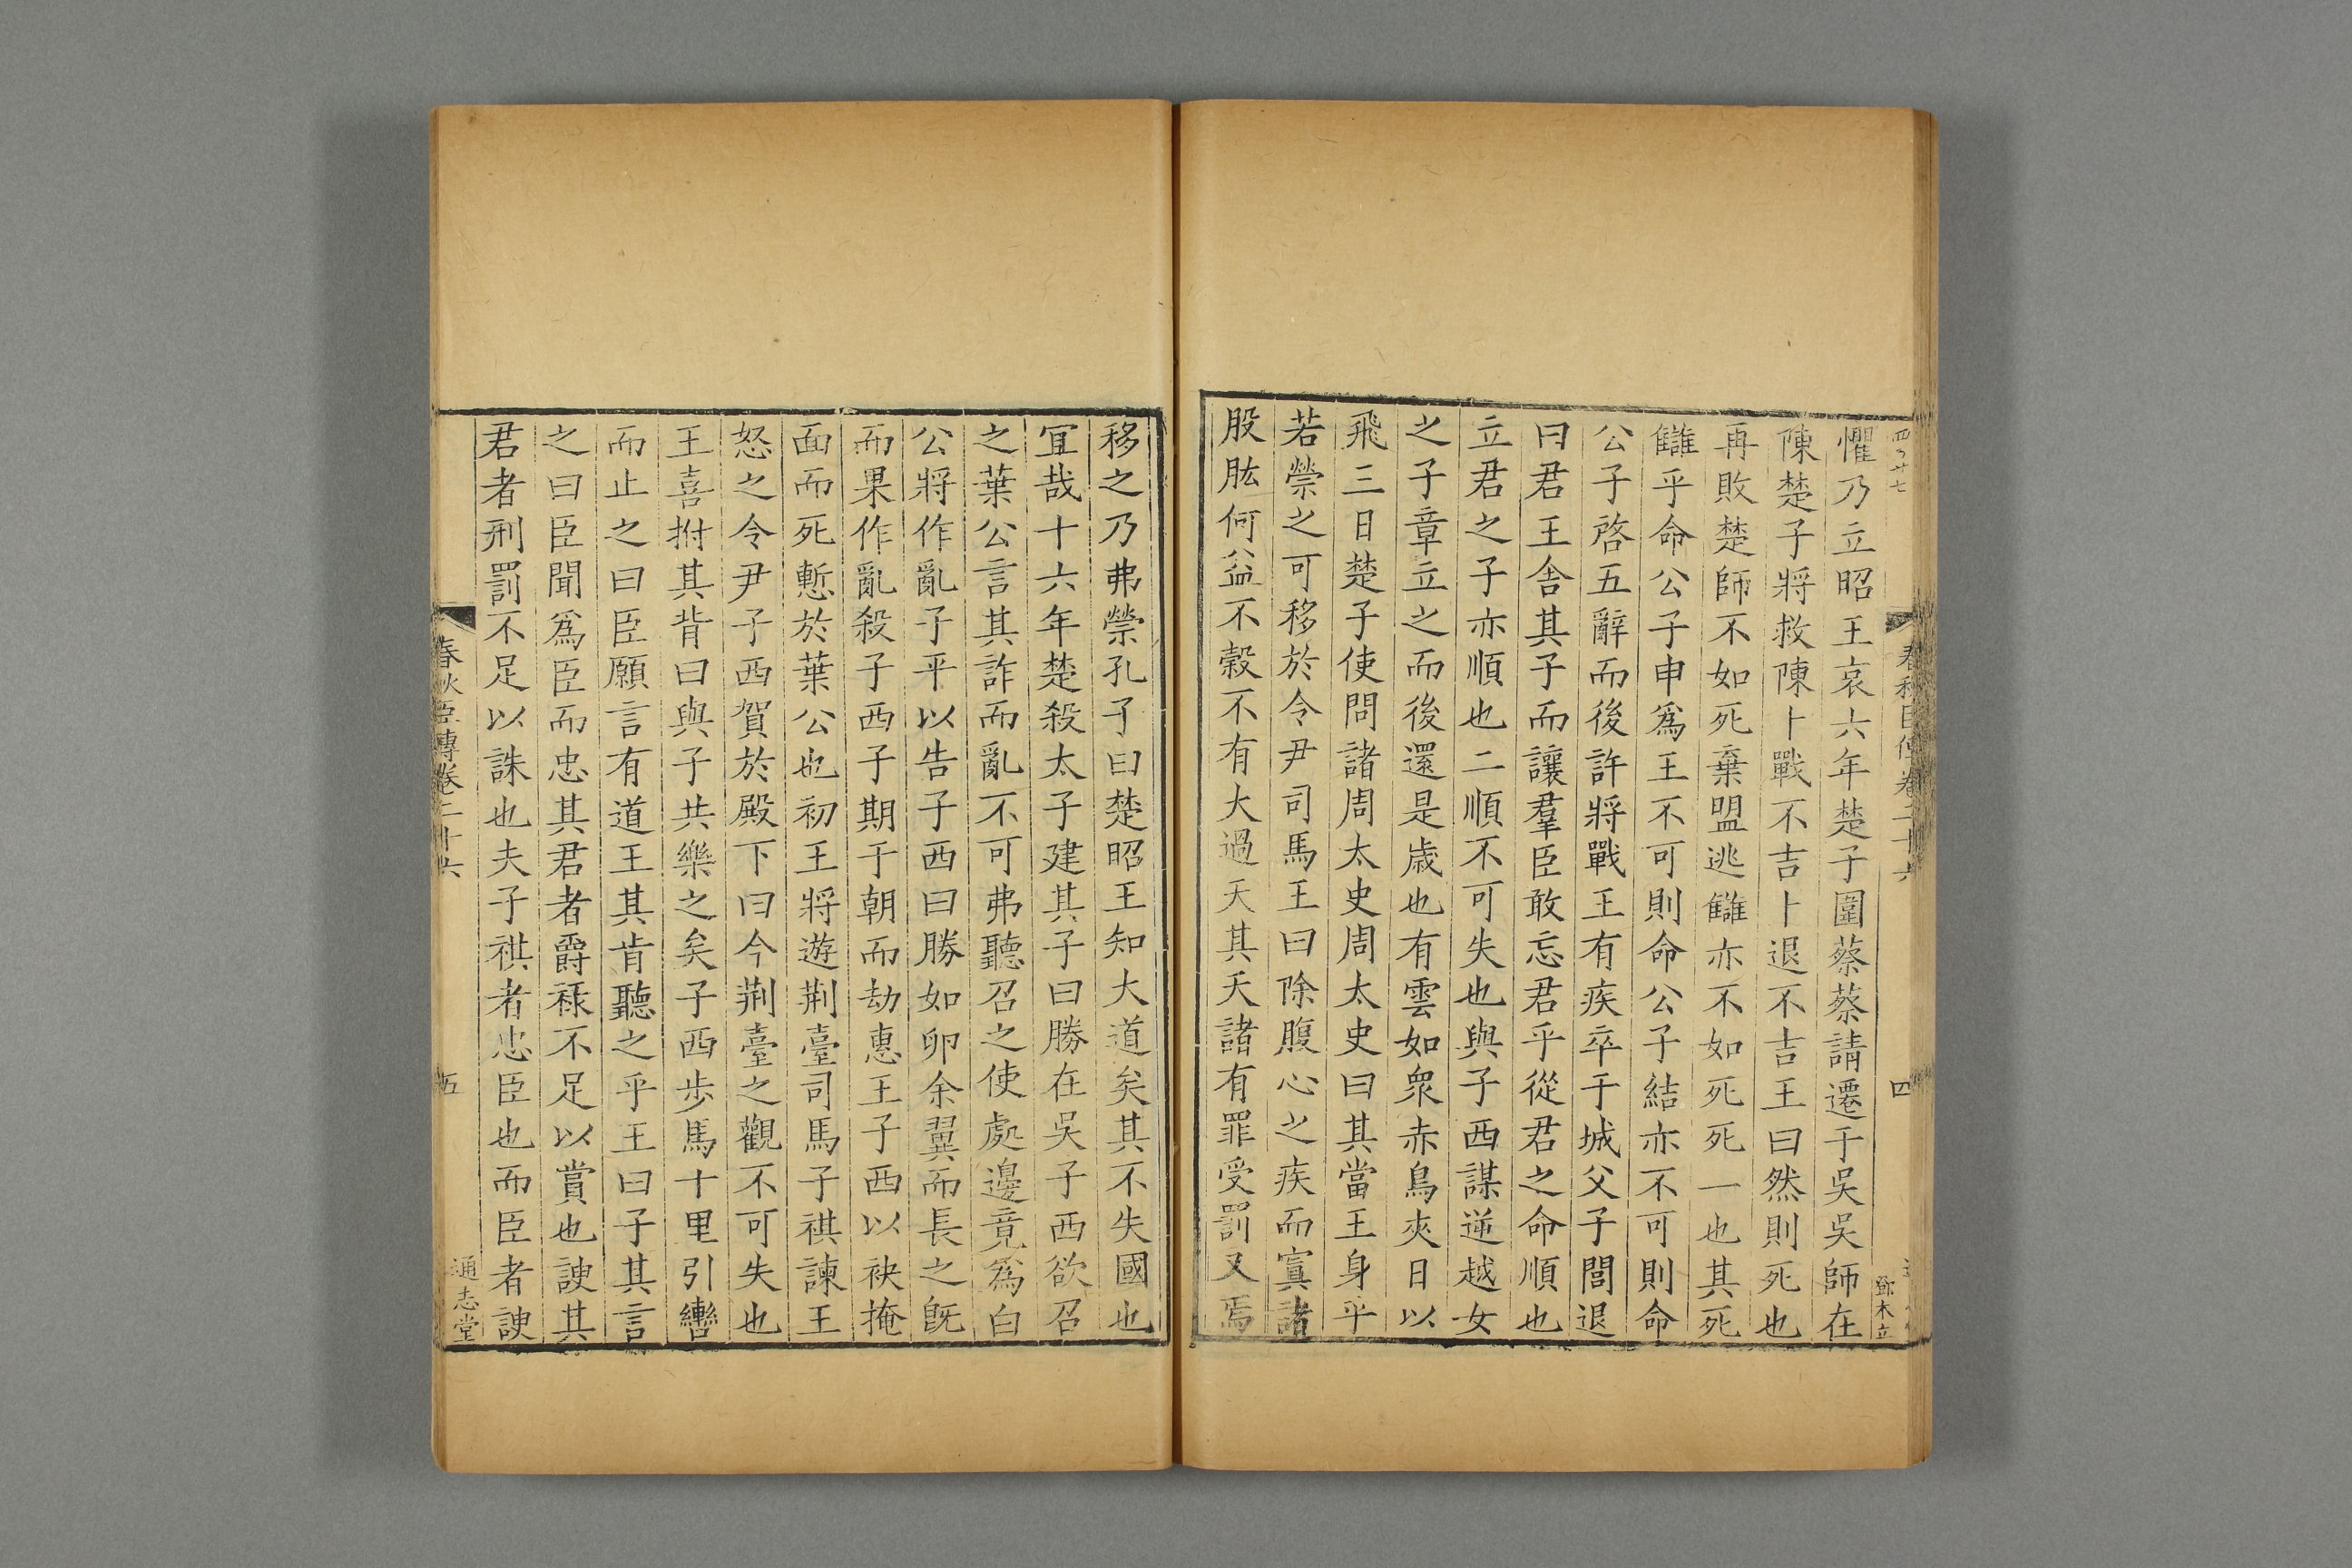 懼乃立昭王哀六年楚子圍蔡蔡請遷于吳吳師在
陳楚子將救陳卜戰不吉卜退不吉王曰然則死也
再敗楚師不如死棄盟逃讎亦不如死死一也其死
讎乎命公子申為王不可則命公子結亦不可則命
公子啓五辭而後許將戰王有疾卒于城父子閭退
曰君王舍其子而讓羣臣敢忘君乎從君之命順也
立君之子亦順也二順不可失也與子西謀逆越女
之子章立之而後還是歲也有雲如衆赤鳥夾日以
飛三日楚子使問諸周太史周太史曰其當王身乎
若禜之可移於令尹司馬王曰除腹心之疾而寘諸
股肱何益不糓不有大過天其夭諸有罪受罰又焉
移之乃弗禜孔子曰楚昭王知大道矣其不失國也
宜哉十六年楚殺太子建其子曰勝在吳子西欲召
之葉公言其詐而亂不可弗聽召之使處邊竟為白
公將作亂子平以告子西曰勝如卵余翼而長之旣
而果作亂殺子西子期于朝而劫惠王子西以袂掩
面而死慙於葉公也初王將遊荆臺司馬子祺諫王
怒之令尹子西賀於殿下曰今荆臺之觀不可失也
王喜拊其背曰與子共樂之矣子西步馬十里引轡
而止之曰臣願言有道王其肯聽之乎王曰子其言
之曰臣聞為臣而忠其君者爵祿不足以賞也諛其
君者刑罰不足以誅也夫子祺者忠臣也而臣者諛
春秋臣傳卷二十六
五
通志堂
四
春秋臣傳卷二十六